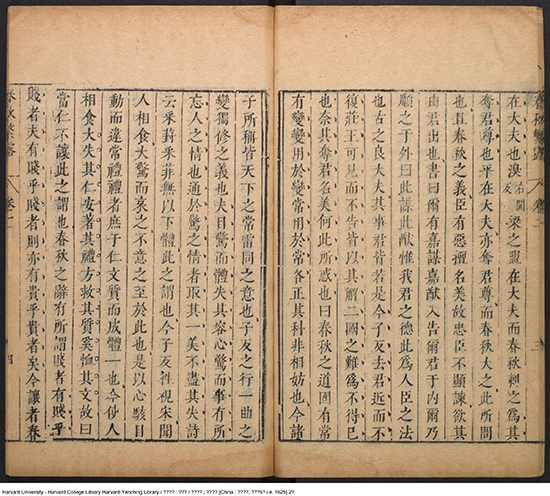 春秋繁露 卷二
在大夫也溴古閴反梁之盟在大夫而春秋刺之
奪君尊也平在大夫亦奪君尊而春秋大之此所
也且春秋之義臣有惡擅名美故忠臣不顯諫欲其
由君出也書曰爾有嘉謀嘉猷入告爾君于內爾乃
順之于外曰此謀此猷惟我君之德此爲人臣之法
也古之良大夫其事君皆若是今子反去君近而不
復莊王可見而不告皆以其解二國之難爲不得已
也奈其奪君名美何此所惑也曰春秋之道固有常
有變變用於變常用於常各止其科非相妨也今諸
子所稱皆天下之常雷同之意也子反之行一曲之
變獨修之義也夫目驚而體失其容心驚而事有所
忘人之情也通於驚之情者取其一美不盡其失詩
云采葑采菲無以下體此之謂也今子反往視宋聞
人相食大驚而哀之不意之至於此也是以心駭目
動而違常禮禮者庶于仁文質而成體一也今使人
相食大失其仁安著其禮方救其質奚恤其文故曰
當仁不讓此之謂也春秋之辭有所謂賤者有賤乎
賤者夫有賤乎賤者則亦有貴乎貴者矣今讓者春
春秋繁露 卷二 四
Harvard University - Harvard College Library Harvard-Yenching Library / ???? : ??? / ???? ; ???? [China : ????, ???5? i.e. 1625] 27.